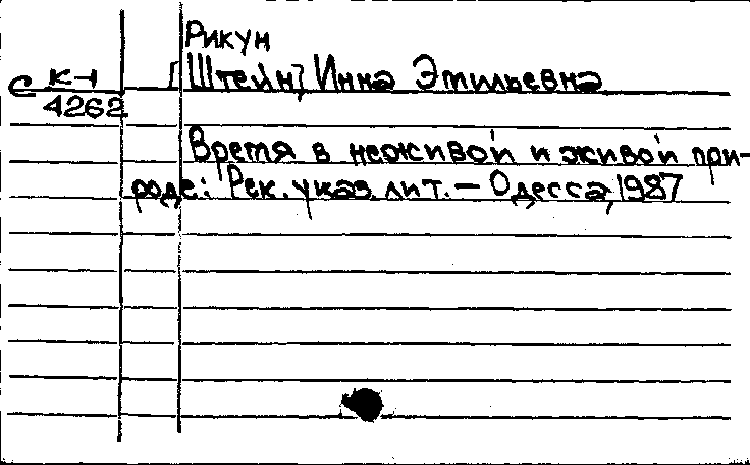 Рикун
[Штейн], Инна Эмильевна
С К-1
4262
Время в неживой и живой при-
роде: Рек. указ. лит. — Одесса, 1987